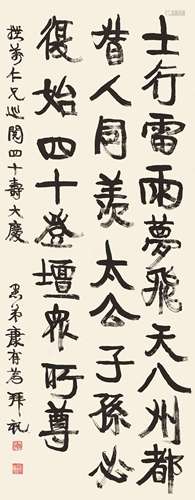 士行雷雨夢飛天八州都
督人同羨太公子孫必
復始四十登壇眾所尊
撫萬仁兄巡閱四十壽大慶
愚弟康有為拜祝